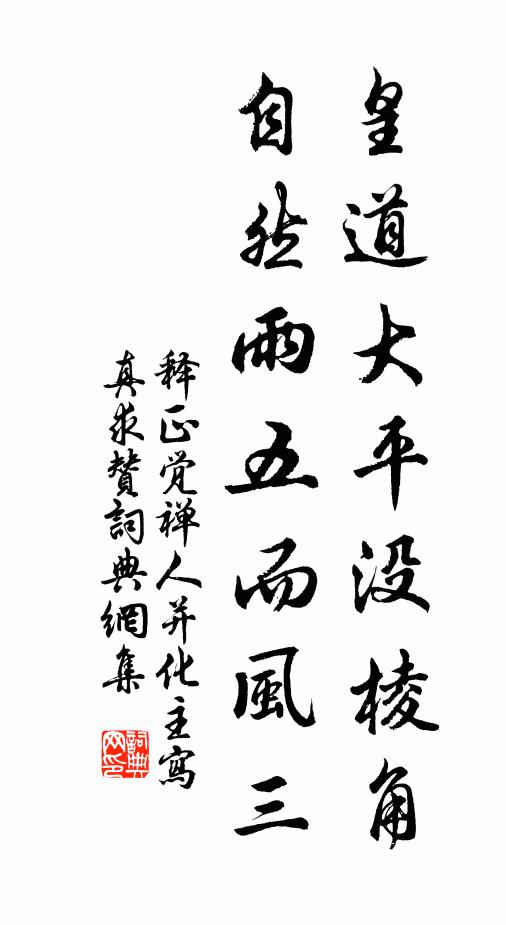 皇道大平没棱角
自然雨五而風三
释正觉禅人并化主寫
真求賛詞典網集
詞典网印